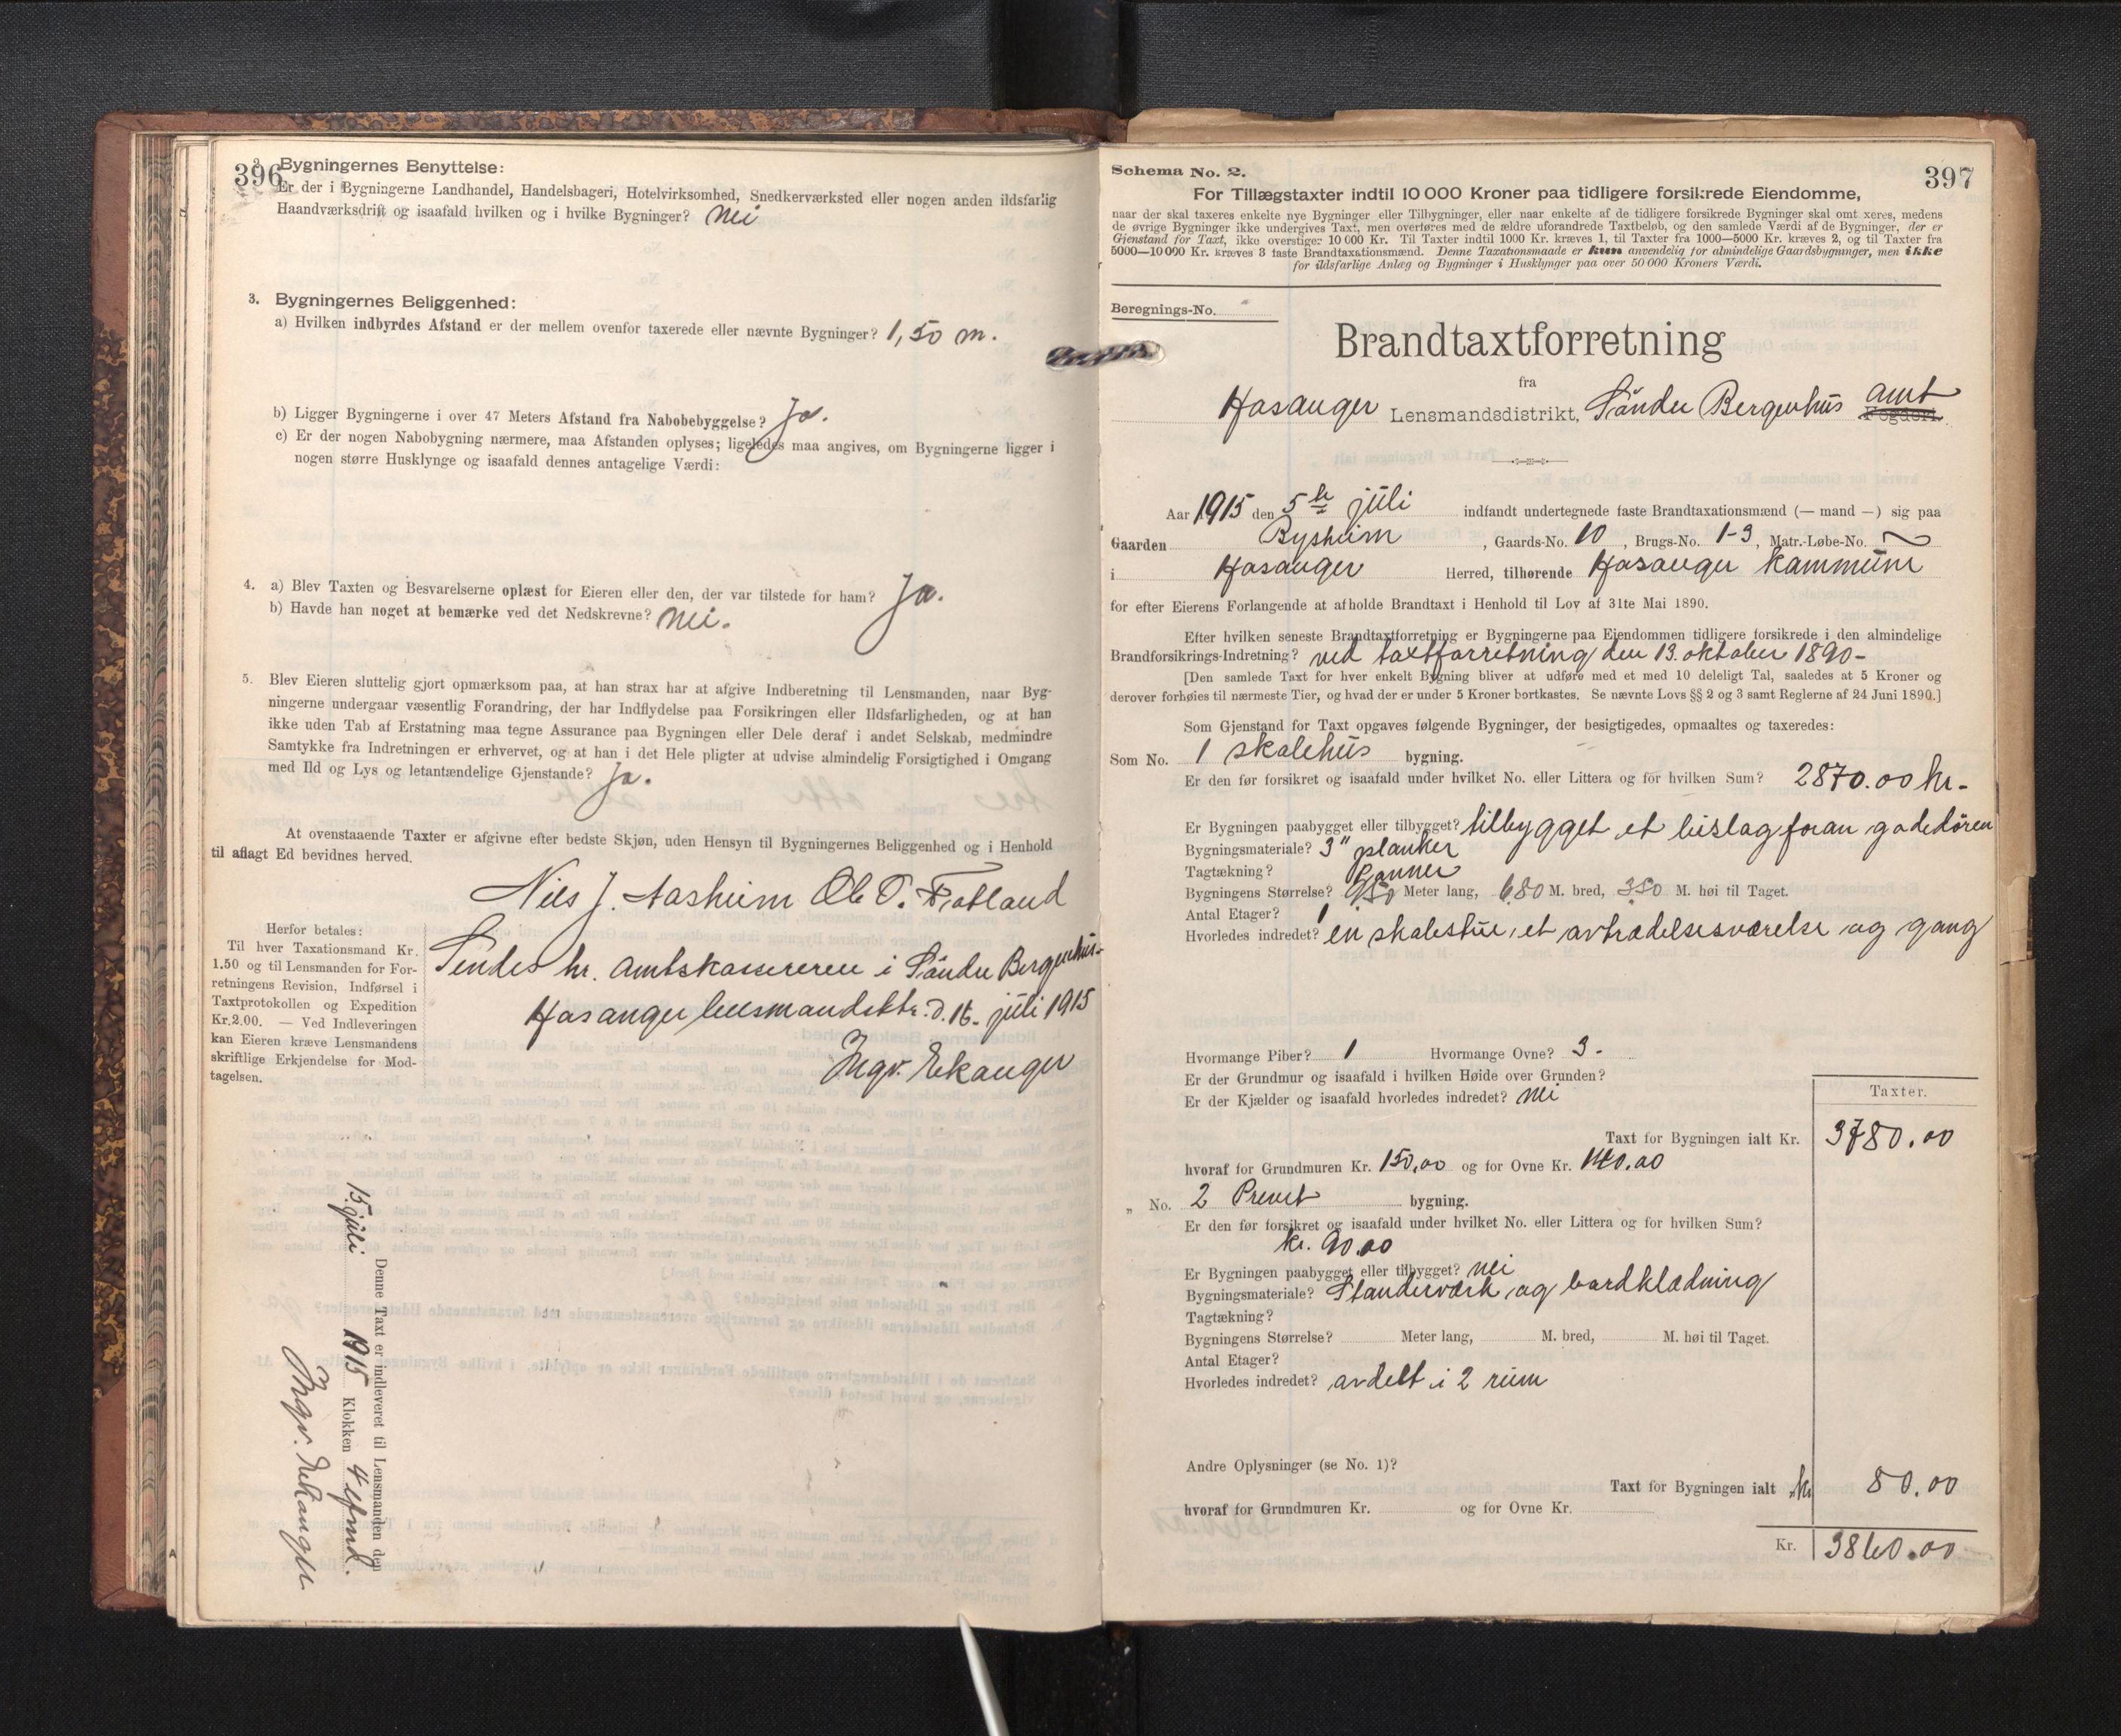 396
3 Bygningernes Benyttelse:
Er der i Bygningerne Landhandel, Handelsbageri, Hotelvirksomhed, Snedkerværksted eller nogen anden ildsfarlig
Haandværksdrift og isaafald hvilken og i hvilke Bygninger? Nei
3. Bygningernes Beliggenhed:
a) Hvilken indbyrdes Afstand er der mellem ovenfor taxerede eller nævnte Bygninger? 1,50 m.
b) Ligger Bygningerne i over 47 Meters Afstand fra Nabobebyggelse? Ja.
c) Er der nogen Nabobygning nærmere, maa Afstanden oplyses; ligeledes maa angives, om Bygningerne ligger i
nogen større Husklynge og isaafald dennes antagelige Værdi:
4. a) Blev Taxten og Besvarelserne oplæst for Eieren eller den, der var tilstede for ham? Ja.
b) Havde han noget at bemærke ved det Nedskrevne? Nei.
5. Blev Eieren sluttelig gjort opmærksom paa, at han strax har at afgive Indberetning til Lensmanden, naar Byg-
ningerne undergaar væsentlig Forandring, der har Indflydelse paa Forsikringen eller Ildsfarligheden, og at han
ikke uden Tab af Erstatning maa tegne Assurance paa Bygningen eller Dele deraf i andet Selskab, medmindre
Samtykke fra Indretningen er erhvervet, og at han i det Hele pligter at udvise almindelig Forsigtighed i Omgang
med Ild og Lys og letantændelige Gjenstande? Ja.
At ovenstaaende Taxter er afgivne efter bedste Skjøn, uden Hensyn til Bygningernes Beliggenhed og i Henhold
til aflagt Ed bevidnes herved.
Nils J. Aasheim Ole T. Fotland
Sendes hr. Amtskassereren i Söndre Bergenhus.
Hosanger lensmandsktr. d. 16. juli 1915
Ingv. Eikanger
Herfor betales:
Til hver Taxationsmand Kr.
1.50 og til Lensmanden for For-
retningens Revision, Indførsel i
Taxtprotokollen og Expedition
Kr.2.00. — Ved Indleveringen
kan Eieren kræve Lensmandens
skriftlige Erkjendelse for Mod-
tagelsen.
Denne Taxt er indleveret til Lensmanden den
15. juli 1915 Klokken 4 efmd.
Ingv. Eikanger
397
Schema No. 2.
For Tillægstaxter indtil 10 000 Kroner paa tidligere forsikrede Eiendomme,
naar der skal taxeres enkelte nye Bygninger eller Tilbygninger, eller naar enkelte af de tidligere forsikrede Bygninger skal omt xeres, medens
de øvrige Bygninger ikke undergives Taxt, men overføres med de ældre uforandrede Taxtbeløb, og den samlede Værdi af de Bygninger, der er
Gjenstand for Taxt, ikke overstiger 10 000 Kr. Til Taxter indtil 1000 Kr. kræves 1, til Taxter fra 1000—5000 Kr. kræves 2, og til Taxter fra
5000—10 000 Kr. kræves 3 faste Brandtaxationsmænd. Denne Taxationsmaade er kun anvendelig for almindelige Gaardsbygninger, men ikke
for ildsfarlige Anlæg og Bygninger i Husklynger paa over 50 000 Kroners Værdi.
Beregnings-No.
Brandtaxtforretning
fra
Hosanger Lensmandsdistrikt, Söndre Bergenhus amt Fogderi.
Aar 1915 den 5te juli indfandt undertegnede faste Brandtaxationsmænd (— mand —) sig paa
Gaarden Rysheim, Gaards-No. 10, Brugs-No. 1-3, Matr.-Løbe-No. ~
i Hosanger Herred, tilhørende Hosanger kommune
for efter Eierens Forlangende at afholde Brandtaxt i Henhold til Lov af 31te Mai 1890.
Efter hvilken seneste Brandtaxtforretning er Bygningerne paa Eiendommen tidligere forsikrede i den almindelige
Brandforsikrings-Indretning? ved taxtforretning den 13. oktober 1890-
[Den samlede Taxt for hver enkelt Bygning bliver at udføre med et med 10 deleligt Tal, saaledes at 5 Kroner og
derover forhøies til nærmeste Tier, og hvad der er under 5 Kroner bortkastes. Se nævnte Lovs §§ 2 og 3 samt Reglerne af 24 Juni 1890.]
Som Gjenstand for Taxt opgaves følgende Bygninger, der besigtigedes, opmaaltes og taxeredes:
Som No. 1 skolehus bygning.
Er den før forsikret og isaafald under hvilket No. eller Littera og for hvilken Sum? 2870.00 kr-
Er Bygningen paabygget eller tilbygget? tilbygget et bislag foran gadedören
Bygningsmateriale? 3" planker
Tagtækning? Panner
Bygningens Størrelse? 950 Meter lang, 6,80 M. bred, 3,50 M. høi til Taget.
Antal Etager? 1
Hvorledes indredet? en skolestue, et avtrædelsesværelse og gang
Hvormange Piber? 1 Hvormange Ovne? 3-
Er der Grundmur og isaafald i hvilken Høide over Grunden?
Er der Kjælder og isaafald hvorledes indredet? Nei
Taxter.
Taxt for Bygningen ialt Kr. 3780.00
hvoraf for Grundmuren Kr. 150,00 og for Ovne Kr. 140.00
„ No. 2 Prevet bygning.
Er den før forsikret og isaafald under hvilket No. eller Littera og for hvilken Sum?
kr. 90.00
Er Bygningen paabygget eller tilbygget? nei
Bygningsmateriale? Standerværk og bordklædning
Tagtækning?
Bygningens Størrelse? Meter lang, M. bred, M. høi til Taget.
Antal Etager?
Hvorledes indredet? avdelt i 2 rum
Andre Oplysninger (se No. 1)?
Taxt for Bygningen ialt kr 80.00
hvoraf for Grundmuren Kr. og for Ovne Kr.
Kr. 3860.00